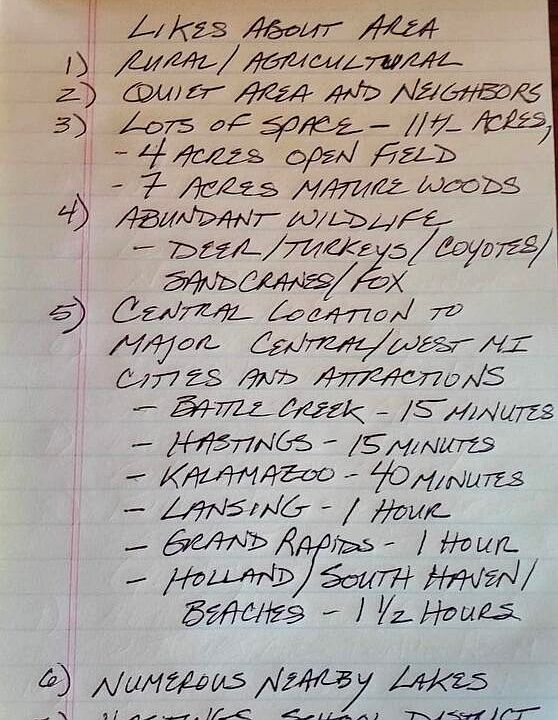 LIKES ABOUT AREA
1) RURAL/AGRICULTURAL
2) QUIET AREA AND NEIGHBORS
3) LOTS OF SPACE - 11+/- ACRES,
- 4 ACRES OPEN FIELD
- 7 ACRES MATURE WOODS
4) ABUNDANT WILDLIFE
- DEER/TURKEYS/COYOTES/
SANDCRANES/FOX
5) CENTRAL LOCATION TO
MAJOR CENTRAL/WEST MI
CITIES AND ATTRACTIONS
- BATTLE CREEK - 15 MINUTES
- HASTINGS - 15 MINUTES
- KALAMAZOO - 40 MINUTES
- LANSING - 1 HOUR
- GRAND RAPIDS - 1 HOUR
- HOLLAND/SOUTH HAVEN/
BEACHES - 1 1/2 HOURS
6) NUMEROUS NEARBY LAKES
7) HASTINGS SCHOOL DISTRICT